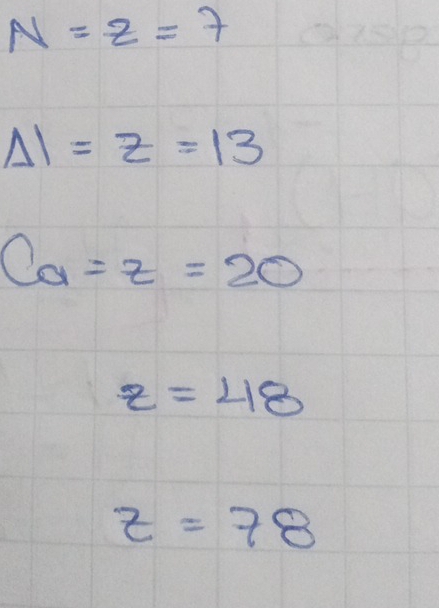 N = z = 7
Al = z = 13
Ca = z = 20
z = 48
z = 78